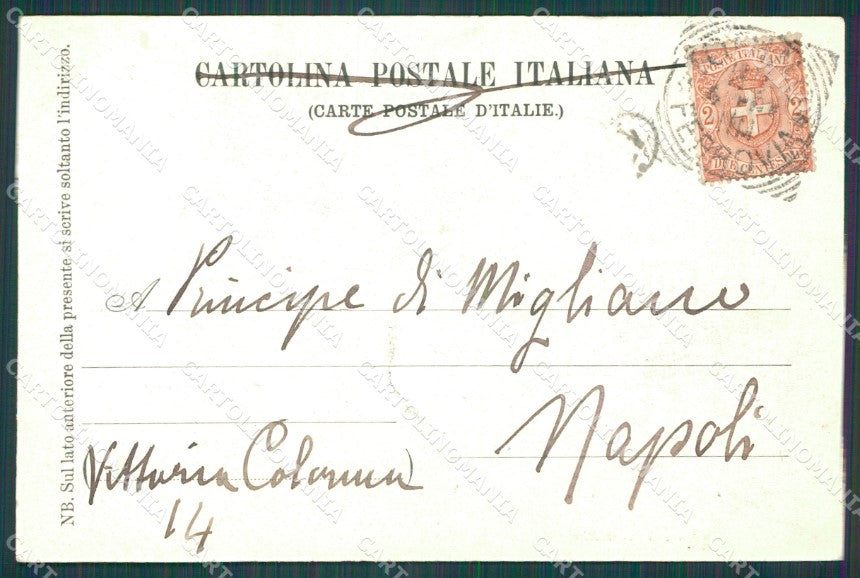 CARTOLINA POSTALE ITALIANA
(CARTE POSTALE D'ITALIE.)
POSTE ITALIANE
2 2
DUE CENTESIMI
FERROVIA
A Principe di Migliano
Napoli
Vittoria Colonna
14
NB. Sul lato anteriore della presente si scrive soltanto l'indirizzo.
CARTOLINOMANIA